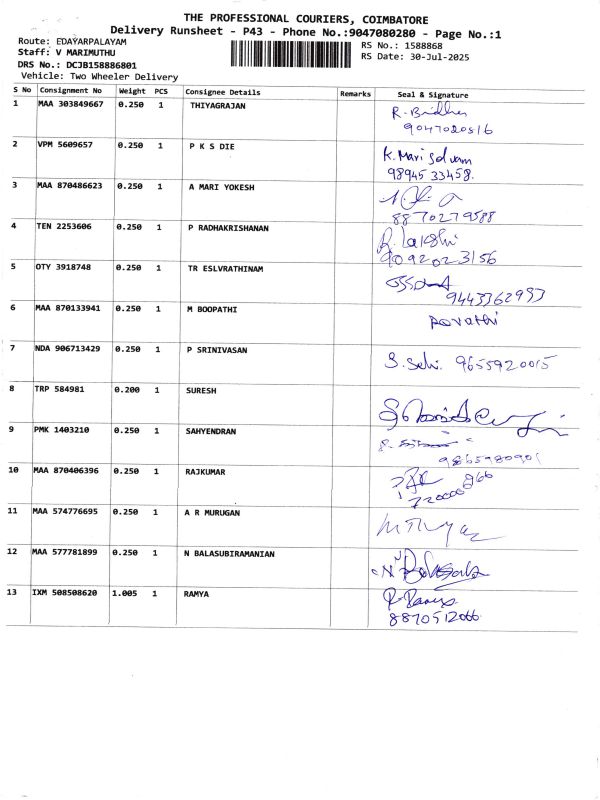 THE PROFESSIONAL COURIERS, COIMBATORE
Delivery Runsheet - P43 - Phone No.:9047080280 - Page No.:1
Route: EDAYARPALAYAM
Staff: V MARIMUTHU
DRS No.: DCJB158886801
Vehicle: Two Wheeler Delivery
RS No.: 1588868
RS Date: 30-Jul-2025
S No Consignment No Weight PCS Consignee Details Remarks Seal & Signature
1 MAA 303849667 0.250 1 THIYAGRAJAN
9047020516
2 VPM 5609657 0.250 1 P K S DIE K. Mari Selvam
98945 33458.
3 MAA 870486623 0.250 1 A MARI YOKESH
8870279588
4 TEN 2253606 0.250 1 P RADHAKRISHANAN
9092023156
5 OTY 3918748 0.250 1 TR ESLVRATHINAM
9443362993
6 MAA 870133941 0.250 1 M BOOPATHI
7 NDA 906713429 0.250 1 P SRINIVASAN S. Selvi. 9655920015
8 TRP 584981 0.200 1 SURESH
9 PMK 1403210 0.250 1 SAHYENDRAN
9865980901
10 MAA 870406396 0.250 1 RAJKUMAR
11 MAA 574776695 0.250 1 A R MURUGAN
12 MAA 577781899 0.250 1 N BALASUBIRAMANIAN
13 IXM 508508620 1.005 1 RAMYA
8870512066